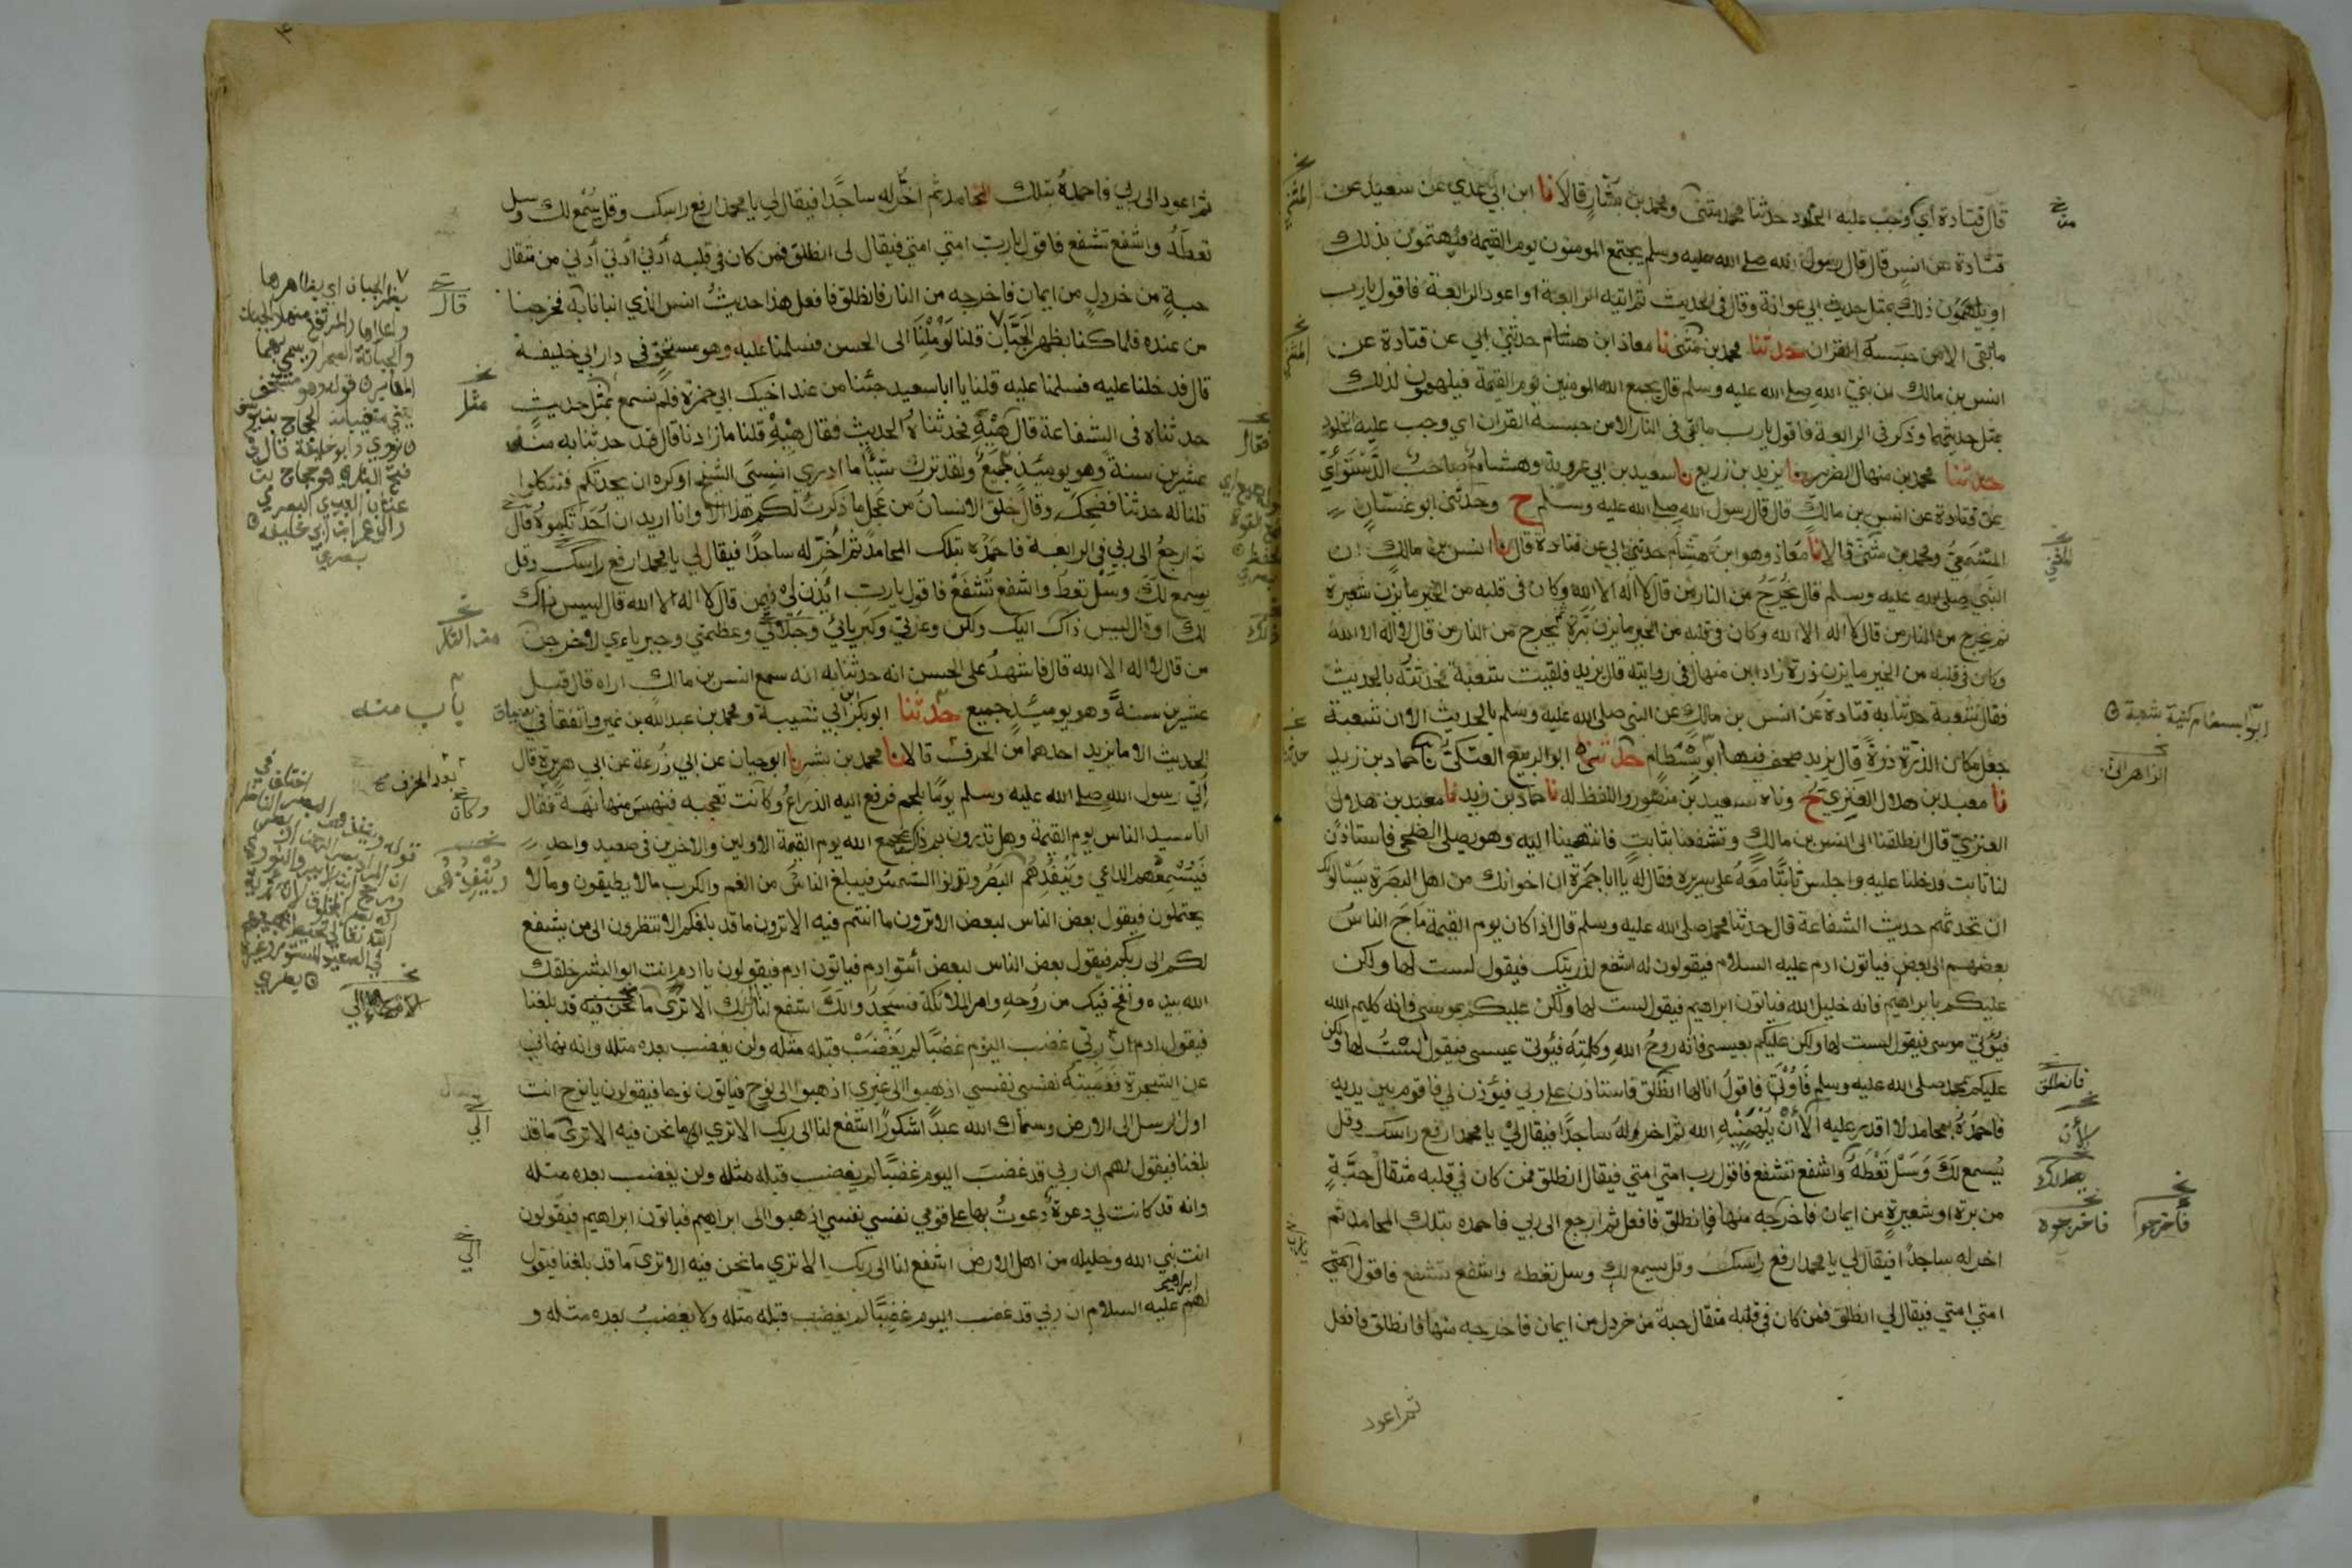 قال قتادة اي وجب عليه الخلود حدثنا محمد بن مثنى ومحمد بن بشار قالا نا ابن ابي عدي عن سعيد عن
قتادة عن انس قال قال رسول الله صلى الله عليه وسلم يجتمع المومنون يوم القيمة فيهتمون بذلك
او يلهمون ذلك بمثل حديث ابي عوانة وقال في الحديث ثم اتيه الرابعة او اعود الرابعة فاقول يارب
ما بقي الا من حبسه القران حدثنا محمد بن مثنى نا معاذ ابن هشام حدثني ابي عن قتادة عن
انس بن مالك ان نبي الله صلى الله عليه وسلم قال يجمع الله المومنين يوم القيمة فيلهمون لذلك
بمثل حديثهما وذكر في الرابعة فاقول يارب ما بقي في النار الا من حبسه القران اي وجب عليه الخلود
حدثنا محمد بن منهال الضرير نا يزيد بن زريع نا سعيد بن ابي عروبة وهشام صاحب الدستوائي
عن قتادة عن انس بن مالك قال قال رسول الله صلى الله عليه وسلم ح وحدثني ابو غسان
المسمعي ومحمد بن مثنى قالا نا معاذ وهو ابن هشام حدثني ابي عن قتادة قال نا انس بن مالك ان
النبي صلى الله عليه وسلم قال يخرج من النار من قال لا اله الا الله وكان في قلبه من الخير ما يزن شعيرة
ثم يخرج من النار من قال لا اله الا الله وكان في قلبه من الخير ما يزن برة ثم يخرج من النار من قال لا اله الا الله
وكان في قلبه من الخير ما يزن ذرة زاد ابن منهال في روايته قال يزيد فلقيت شعبة فحدثته بالحديث
فقال شعبة حدثنا به قتادة عن انس بن مالك عن النبي صلى الله عليه وسلم بالحديث الا ان شعبة
جعل مكان الذرة ذرة قال يزيد صحف فيها ابو بسطام حدثنا ابو الربيع العتكي نا حماد بن زيد
نا معبد بن هلال العنزي ح وناه سعيد بن منصور واللفظ له نا حماد بن زيد نا معبد بن هلال
العنزي قال انطلقنا الى انس بن مالك وتشفعنا بثابت فانتهينا اليه وهو يصلي الضحى فاستاذن
لنا ثابت فدخلنا عليه واجلس ثابتا معه على سريره فقال له يا ابا حمزة ان اخوانك من اهل البصرة يسالونك
ان تحدثهم حديث الشفاعة قال حدثنا محمد صلى الله عليه وسلم قال اذا كان يوم القيمة ماج الناس
بعضهم الى بعض فياتون ادم عليه السلام فيقولون له اشفع لذريتك فيقول لست لها ولكن
عليكم بابراهيم فانه خليل الله فياتون ابراهيم فيقول لست لها ولكن عليكم بموسى فانه كليم الله
فيؤتى موسى فيقول لست لها ولكن عليكم بعيسى فانه روح الله وكلمته فيؤتى عيسى فيقول لست لها ولكن
عليكم بمحمد صلى الله عليه وسلم فاوتى فاقول انا لها انطلق فاستاذن على ربي فيؤذن لي فاقوم بين يديه
فاحمده بمحامد لا اقدر عليه الا ان يلهمنيه الله ثم اخر له ساجدا فيقال لي يا محمد ارفع راسك وقل
يسمع لك وسل تعطه واشفع تشفع فاقول رب امتي امتي فيقال انطلق فمن كان في قلبه مثقال حبة
من برة او شعيرة من ايمان فاخرجه منها فانطلق فافعل ثم ارجع الى ربي فاحمده بتلك المحامد ثم
اخر له ساجدا فيقال لي يا محمد ارفع راسك وقل يسمع لك وسل تعطه واشفع تشفع فاقول
امتي امتي فيقال لي انطلق فمن كان في قلبه مثقال حبة من خردل من ايمان فاخرجه منها فانطلق فافعل
ثم اعود
ابو بسطام كنية شعبة
الزاهراني
فانطلق
الآن
فاخرجوه
فاخرجوا
ثم اعود الى ربي فاحمده بتلك المحامد ثم اخر له ساجدا فيقال لي يا محمد ارفع راسك وقل يسمع لك وسل
تعطه واشفع تشفع فاقول يارب امتي امتي فيقال لي انطلق فمن كان في قلبه أدنى أدنى أدنى من مثقال
حبة من خردل من ايمان فاخرجه من النار فانطلق فافعل هذا حديث انس الذي انبانا به فخرجنا
من عنده فلما كنا بظهر الجبان قلنا لو ملنا الى الحسن فسلمنا عليه وهو مستخف في دار ابي خليفة
قال فدخلنا عليه فسلمنا عليه قلنا يا ابا سعيد جئنا من عند اخيك ابي حمزة فلم نسمع بمثل حديث
حدثناه في الشفاعة قال هيه فحدثناه الحديث فقال هيه قلنا ما زادنا قال قد حدثنا به منذ
عشرين سنة وهو يومئذ جميع ولقد ترك شيئا ما ادري انسي الشيخ او كره ان يحدثكم فتتكلوا
قلنا له حدثنا فضحك وقال خلق الانسان من عجل ما ذكرت لكم هذا الا وانا اريد ان احدثكموه قال
ثم ارجع الى ربي في الرابعة فاحمده بتلك المحامد ثم اخر له ساجدا فيقال لي يا محمد ارفع راسك وقل
يسمع لك وسل تعط واشفع تشفع فاقول يارب ائذن لي فيمن قال لا اله الا الله قال ليس ذاك
لك او قال ليس ذاك اليك ولكن وعزتي وكبريائي وجلالي وعظمتي وجبريائي لاخرجن
من قال لا اله الا الله قال فاشهد على الحسن انه حدثنا به انه سمع انس بن مالك اراه قال قبل
عشرين سنة وهو يومئذ جميع حدثنا ابو بكر بن ابي شيبة ومحمد بن عبد الله بن نمير واتفقا في سياق
الحديث الا ما يزيد احدهما من الحرف قالا نا محمد بن بشر نا ابو حيان عن ابي زرعة عن ابي هريرة قال
أتي رسول الله صلى الله عليه وسلم يوما بلحم فرفع اليه الذراع وكانت تعجبه فنهس منها نهسة فقال
انا سيد الناس يوم القيمة وهل تدرون بم ذاك يجمع الله يوم القيمة الاولين والاخرين في صعيد واحد
فيسمعهم الداعي وينفذهم البصر وتدنوا الشمس فيبلغ الناس من الغم والكرب مالا يطيقون ومالا
يحتملون فيقول بعض الناس لبعض الا ترون ما انتم فيه الا ترون ما قد بلغكم الا تنظرون الى من يشفع
لكم الى ربكم فيقول بعض الناس لبعض أئتوا ادم فياتون ادم فيقولون يا ادم انت ابو البشر خلقك
الله بيده ونفخ فيك من روحه وامر الملائكة فسجدوا لك اشفع لنا الى ربك الا ترى ما نحن فيه قد بلغنا
فيقول ادم ان ربي غضب اليوم غضبا لم يغضب قبله مثله ولن يغضب بعده مثله وانه نهاني
عن الشجرة فعصيته نفسي نفسي اذهبوا الى غيري اذهبوا الى نوح فياتون نوحا فيقولون يا نوح انت
اول الرسل الى الارض وسماك الله عبدا شكورا اشفع لنا الى ربك الا ترى الى ما نحن فيه الا ترى ما قد
بلغنا فيقول لهم ان ربي قد غضب اليوم غضبا لم يغضب قبله مثله ولن يغضب بعده مثله
وانه قد كانت لي دعوة دعوت بها على قومي نفسي نفسي اذهبوا الى ابراهيم فياتون ابراهيم فيقولون
انت نبي الله وخليله من اهل الارض اشفع لنا الى ربك الا ترى ما نحن فيه الا ترى ما قد بلغنا فيقول
لهم ابراهيم عليه السلام ان ربي قد غضب اليوم غضبا لم يغضب قبله مثله ولا يغضب بعده مثله و
بظهر الجبان اي بظاهرها
قال
مثل
باب منه
وكان
الى
الى